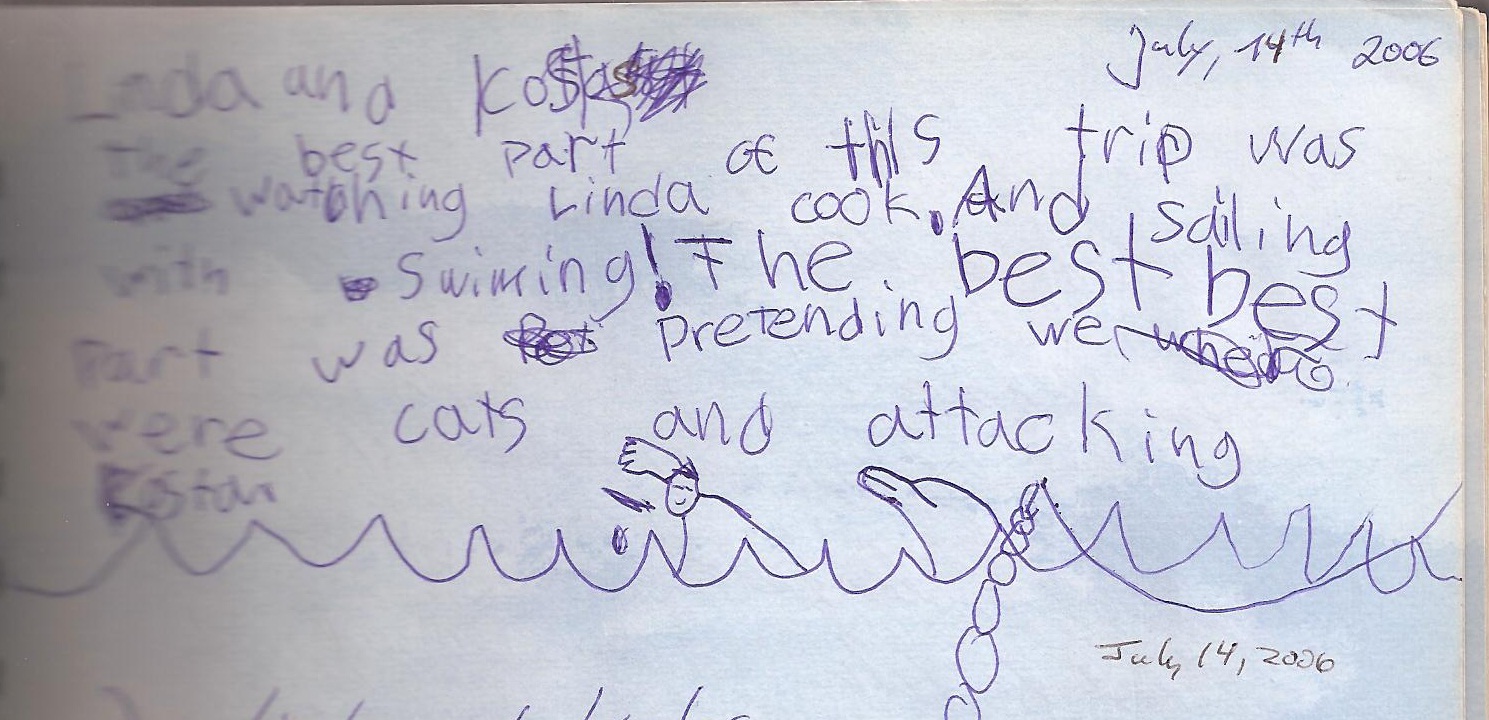 July, 14th 2006
Linda and Kostas
The best part of this trip was
watching Linda cook. And sailing
with Swiming! The best best
part was pretending we
were cats and attacking
Kostas
July 14, 2006